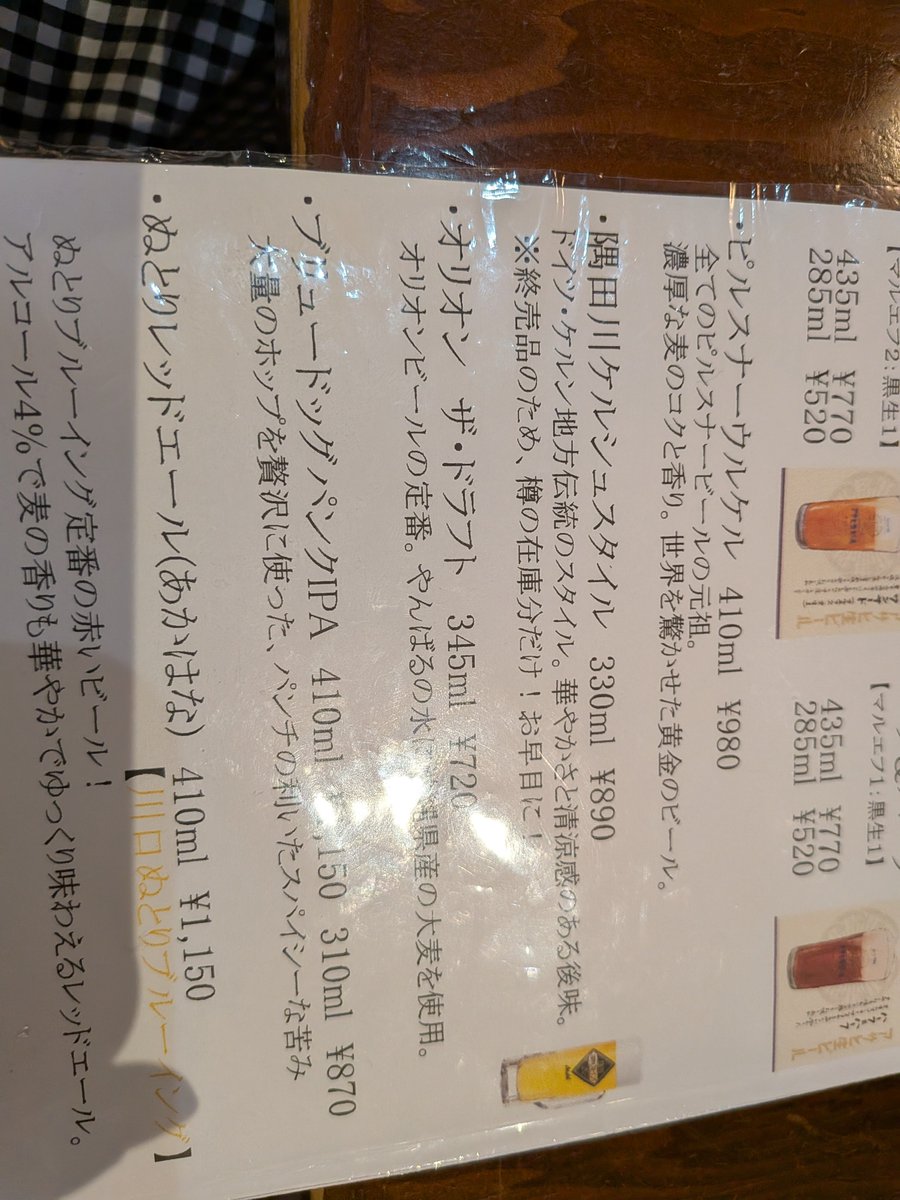 【マルエフ2:黒生1】
435ml ¥770
285ml ¥520
【マルエフ1:黒生1】
435ml ¥770
285ml ¥520
アサヒ生ビール
アサヒ生ビール
・ピルスナーウルケル 410ml ¥980
全てのピルスナービールの元祖。
濃厚な麦のコクと香り。世界を驚かせた黄金のビール。
・隅田川ケルシュスタイル 330ml ¥890
ドイツ・ケルン地方伝統のスタイル。華やかさと清涼感のある後味。
※終売品のため、樽の在庫分だけ!お早目に!
・オリオン ザ・ドラフト 345ml ¥720
オリオンビールの定番。やんばるの水に 縄県産の大麦を使用。
・ブリュードッグパンクIPA 410ml ,150 310ml ¥870
大量のホップを贅沢に使った、パンチの利いたスパイシーな苦み
・ぬとりレッドエール(あかはな) 410ml ¥1,150
【川口ぬとりブルーイング】
ぬとりブルーイング定番の赤いビール!
アルコール4%で麦の香りも華やかでゆっくり味わえるレッドエール。